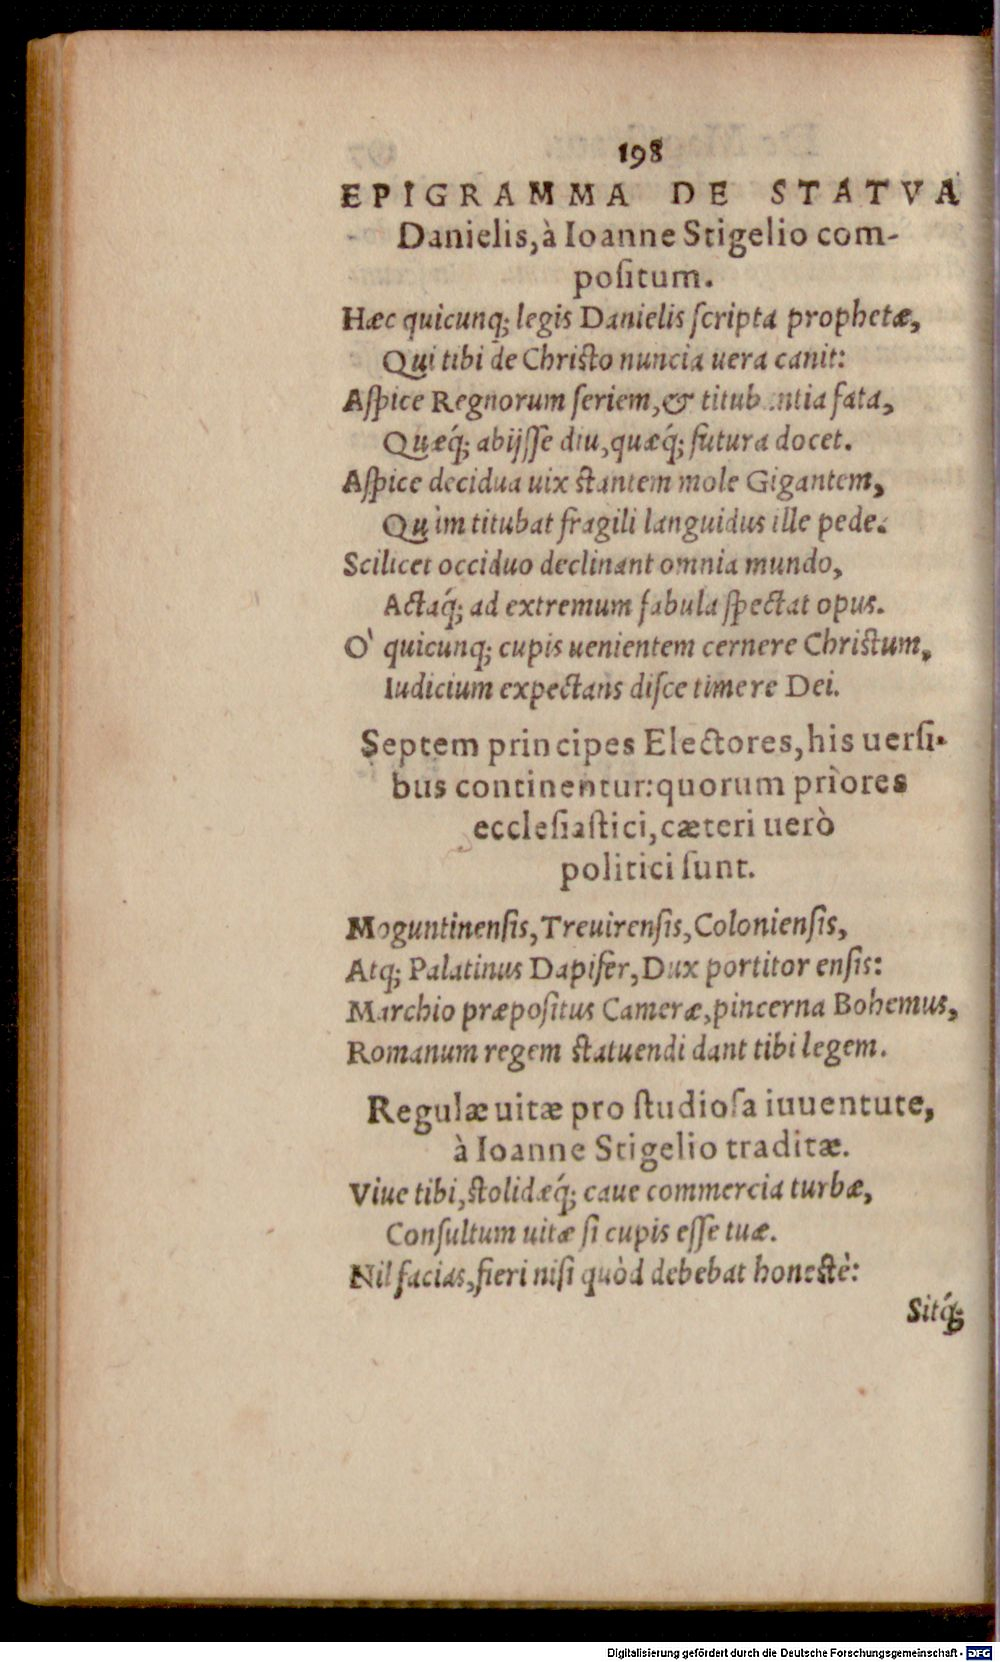 198
EPIGRAMMA DE STATVA
Danielis, à Ioanne Stigelio com-
positum.
Hæc quicunq; legis Danielis scripta prophetæ,
Qui tibi de Christo nuncia uera canit:
Aspice Regnorum seriem, & titubantia fata,
Quæq́; abijsse diu, quæq́; futura docet.
Aspice decidua uix stantem mole Gigantem,
Quim titubat fragili languidus ille pede.
Scilicet occiduo declinant omnia mundo,
Actaq́; ad extremum fabula spectat opus.
O' quicunq; cupis uenientem cernere Christum,
Iudicium expectans disce timere Dei.
Septem principes Electores, his uersi-
bus continentur: quorum priores
ecclesiastici, cæteri uerò
politici sunt.
Moguntinensis, Treuirensis, Coloniensis,
Atq; Palatinus Dapifer, Dux portitor ensis:
Marchio præpositus Cameræ, pincerna Bohemus,
Romanum regem statuendi dant tibi legem.
Regulæ uitæ pro studiosa iuuentute,
à Ioanne Stigelio traditæ.
Viue tibi, stolidæq́; caue commercia turbæ,
Consultum uitæ si cupis esse tuæ.
Nil facias, fieri nisi quòd debebat honestè:
Sitq́;
Digitalisierung gefördert durch die Deutsche Forschungsgemeinschaft - DFG